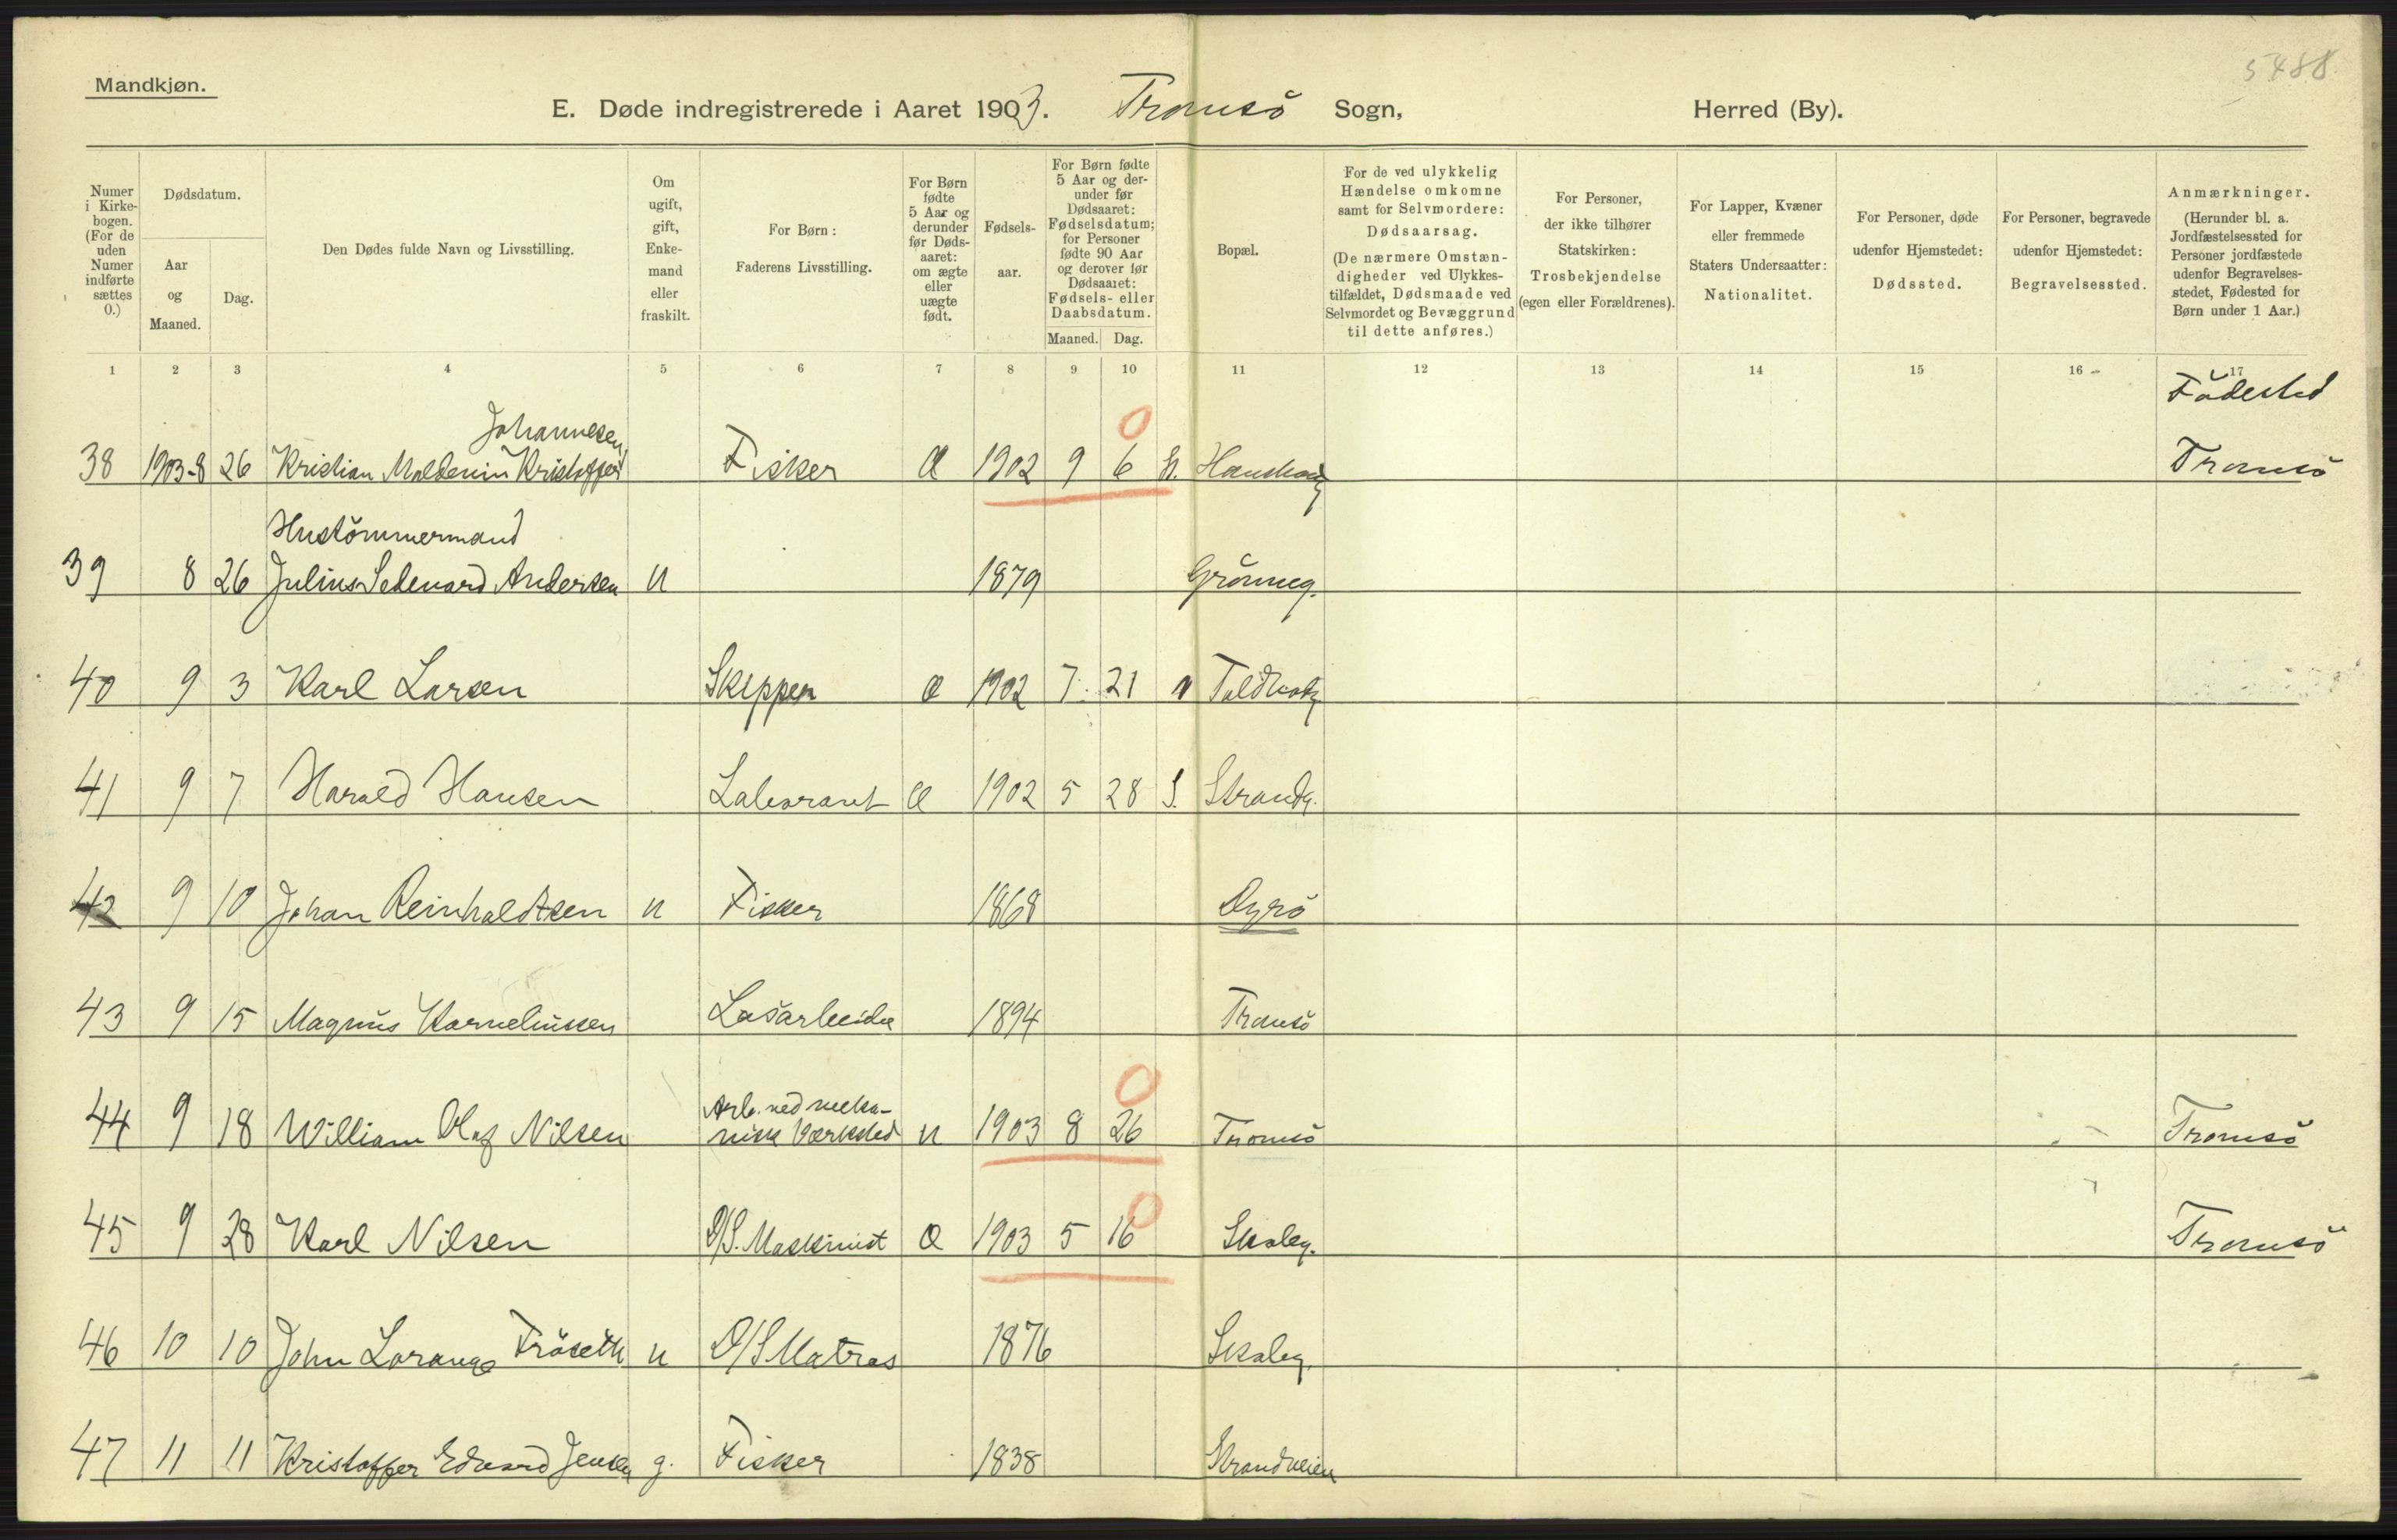 5488
Mandkjøn.
E. Døde indregistrerede i Aaret 1903. Tromsö Sogn, Herred (By).
Numer i Kirkebogen. (For de uden Numer indførte sættes 0.)
Dødsdatum.
Aar og Maaned.
Dag.
Den Dødes fulde Navn og Livsstilling.
Om ugift, gift, Enkemand eller fraskilt.
For Børn: Faderens Livsstilling.
For Børn fødte 5 Aar og derunder før Dødsaaret: om ægte eller uægte født.
Fødselsaar.
For Børn fødte 5 Aar og derunder før Dødsaaret: Fødselsdatum; for Personer fødte 90 Aar og derover før Dødsaaret: Fødsels- eller Daabsdatum.
Maaned. Dag.
Bopæl.
For de ved ulykkelig Hændelse omkomne samt for Selvmordere: Dødsaarsag. (De nærmere Omstændigheder ved Ulykkestilfældet, Dødsmaade ved Selvmordet og Bevæggrund til dette anføres.)
For Personer, der ikke tilhører Statskirken: Trosbekjendelse (egen eller Forældrenes).
For Lapper, Kvæner eller fremmede Staters Undersaatter: Nationalitet.
For Personer, døde udenfor Hjemstedet: Dødssted.
For Personer, begravede udenfor Hjemstedet: Begravelsessted.
Anmærkninger. (Herunder bl. a. Jordfæstelsessted for Personer jordfæstede udenfor Begravelsesstedet, Fødested for Børn under 1 Aar.)
1 2 3 4 5 6 7 8 9 10 11 12 13 14 15 16 17
Födested
Johannesen
0
38 1903-8 26 Kristian Kristoffer Fisker Æ 1902 9 6 Tromsö
Hustömmermand
39 8 26 Julius Andersen u 1879 Grönneg.
40 9 3 Karl Larsen Skipper 1902 7 21
41 9 7 Harald Hansen 1902 5 28 S. Strandg.
42 9 10 Johan Reinholdtsen u Fisker 1868 Dyrö
43 9 15 Magnus Korneliussen Lösarbeider 1894 Tromsö
0
Arb. ved meka-
44 9 18 William Olaf Nilsen nisk Værksted u 1903 8 26 Tromsö Tromsö
0
45 9 28 Karl Nilsen D/S. Maskinist Æ 1903 5 16 Skoleg. Tromsö
46 10 10 John Fröseth u D/S Matros 1876 Skoleg.
47 11 11 Kristoffer Edvard Jensen g. Fisker 1838 Strandveien